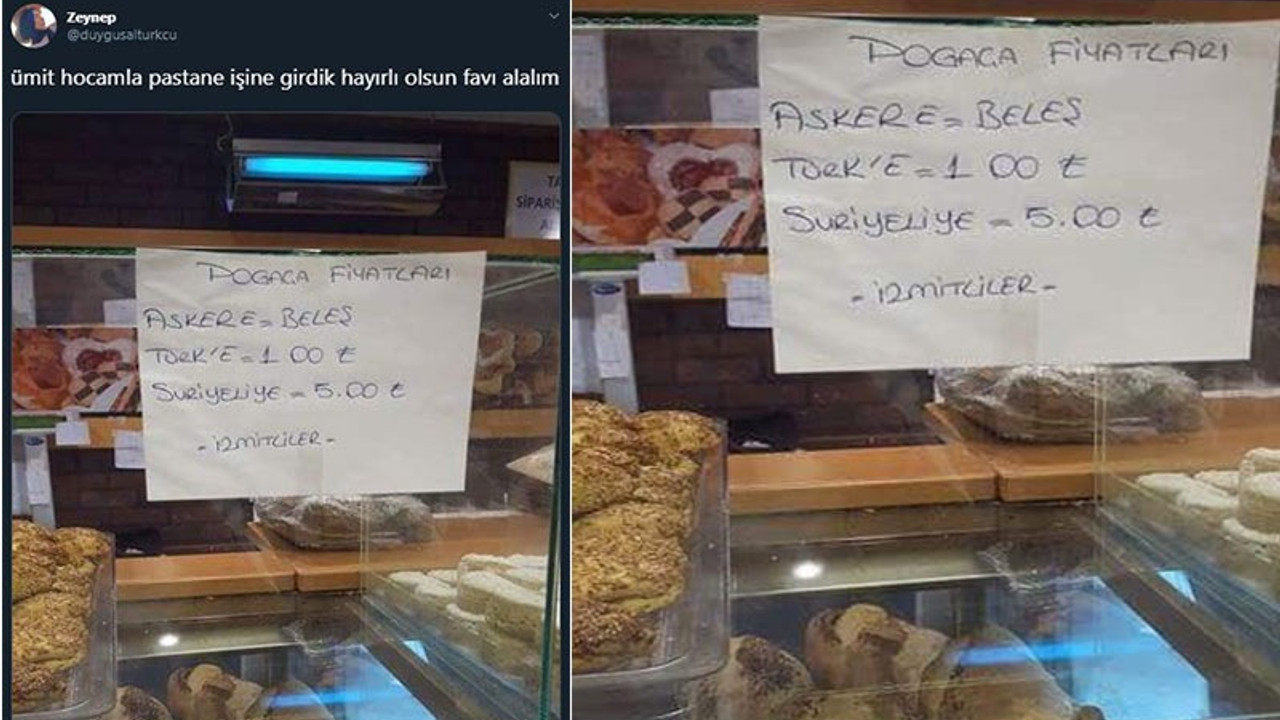 Zeynep
@duygusalturkcu
ümit hocamla pastane işine girdik hayırlı olsun favı alalım
TA
SİPARİŞ
A
POGAÇA FİYATLARI
ASKERE = BELEŞ
TÜRK'E = 1 00 ₺
SURİYELİYE = 5.00 ₺
- İZMİTLİLER -
POGAÇA FİYATLARI
ASKERE = BELEŞ
TÜRK'E = 1 00 ₺
SURİYELİYE = 5.00 ₺
- İZMİTLİLER -